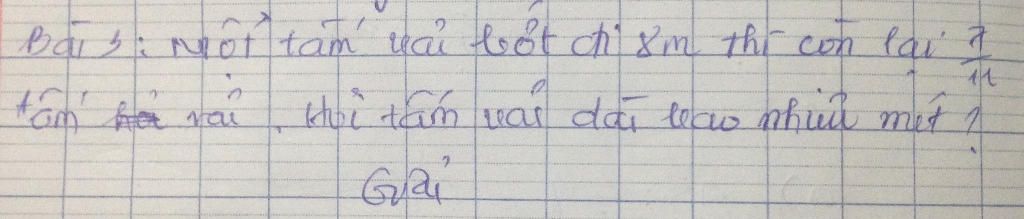 Bài 3: Một tấm vải bớt đi 8m thì còn lại 7/11
tấm vải. Hỏi tấm vải dài bao nhiêu mét?
Giải